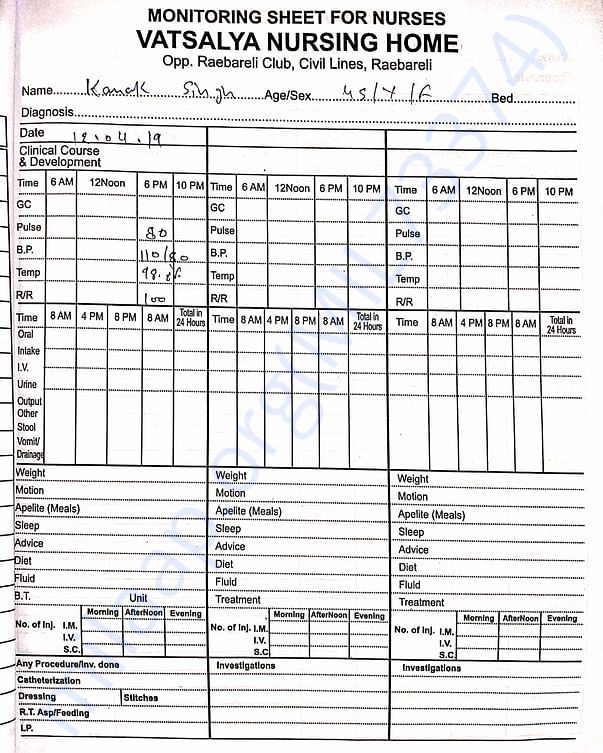 MONITORING SHEET FOR NURSES
VATSALYA NURSING HOME
Opp. Raebareli Club, Civil Lines, Raebareli
Name Kanak Singh Age/Sex 45/Y/F Bed
Diagnosis
Date 12.04.19
Clinical Course
& Development
Time 6 AM 12Noon 6 PM 10 PM Time 6 AM 12Noon 6 PM 10 PM Time 6 AM 12Noon 6 PM 10 PM
GC GC GC
Pulse 80 Pulse Pulse
B.P. 110/80 B.P. B.P.
Temp Temp Temp
R/R 100 R/R R/R
Time 8 AM 4 PM 8 PM 8 AM Total in 24 Hours Time 8 AM 4 PM 8 PM 8 AM Total in 24 Hours Time 8 AM 4 PM 8 PM 8 AM Total in 24 Hours
Oral
Intake
I.V.
Urine
Output
Other
Stool
Vomit/
Drainage
Weight Weight Weight
Motion Motion Motion
Apelite (Meals) Apelite (Meals) Apelite (Meals)
Sleep Sleep Sleep
Advice Advice Advice
Diet Diet Diet
Fluid Fluid Fluid
B.T. Unit Treatment Treatment
Morning AfterNoon Evening Morning AfterNoon Evening Morning AfterNoon Evening
No. of Inj. I.M. No. of Inj. I.M. No. of Inj. I.M.
I.V. I.V. I.V.
S.C. S.C. S.C.
Any Procedure/Inv. done Investigations Investigations
Catheterization
Dressing Stitches
R.T. Asp/Feeding
LP.
milaap.org(MIL 73374)